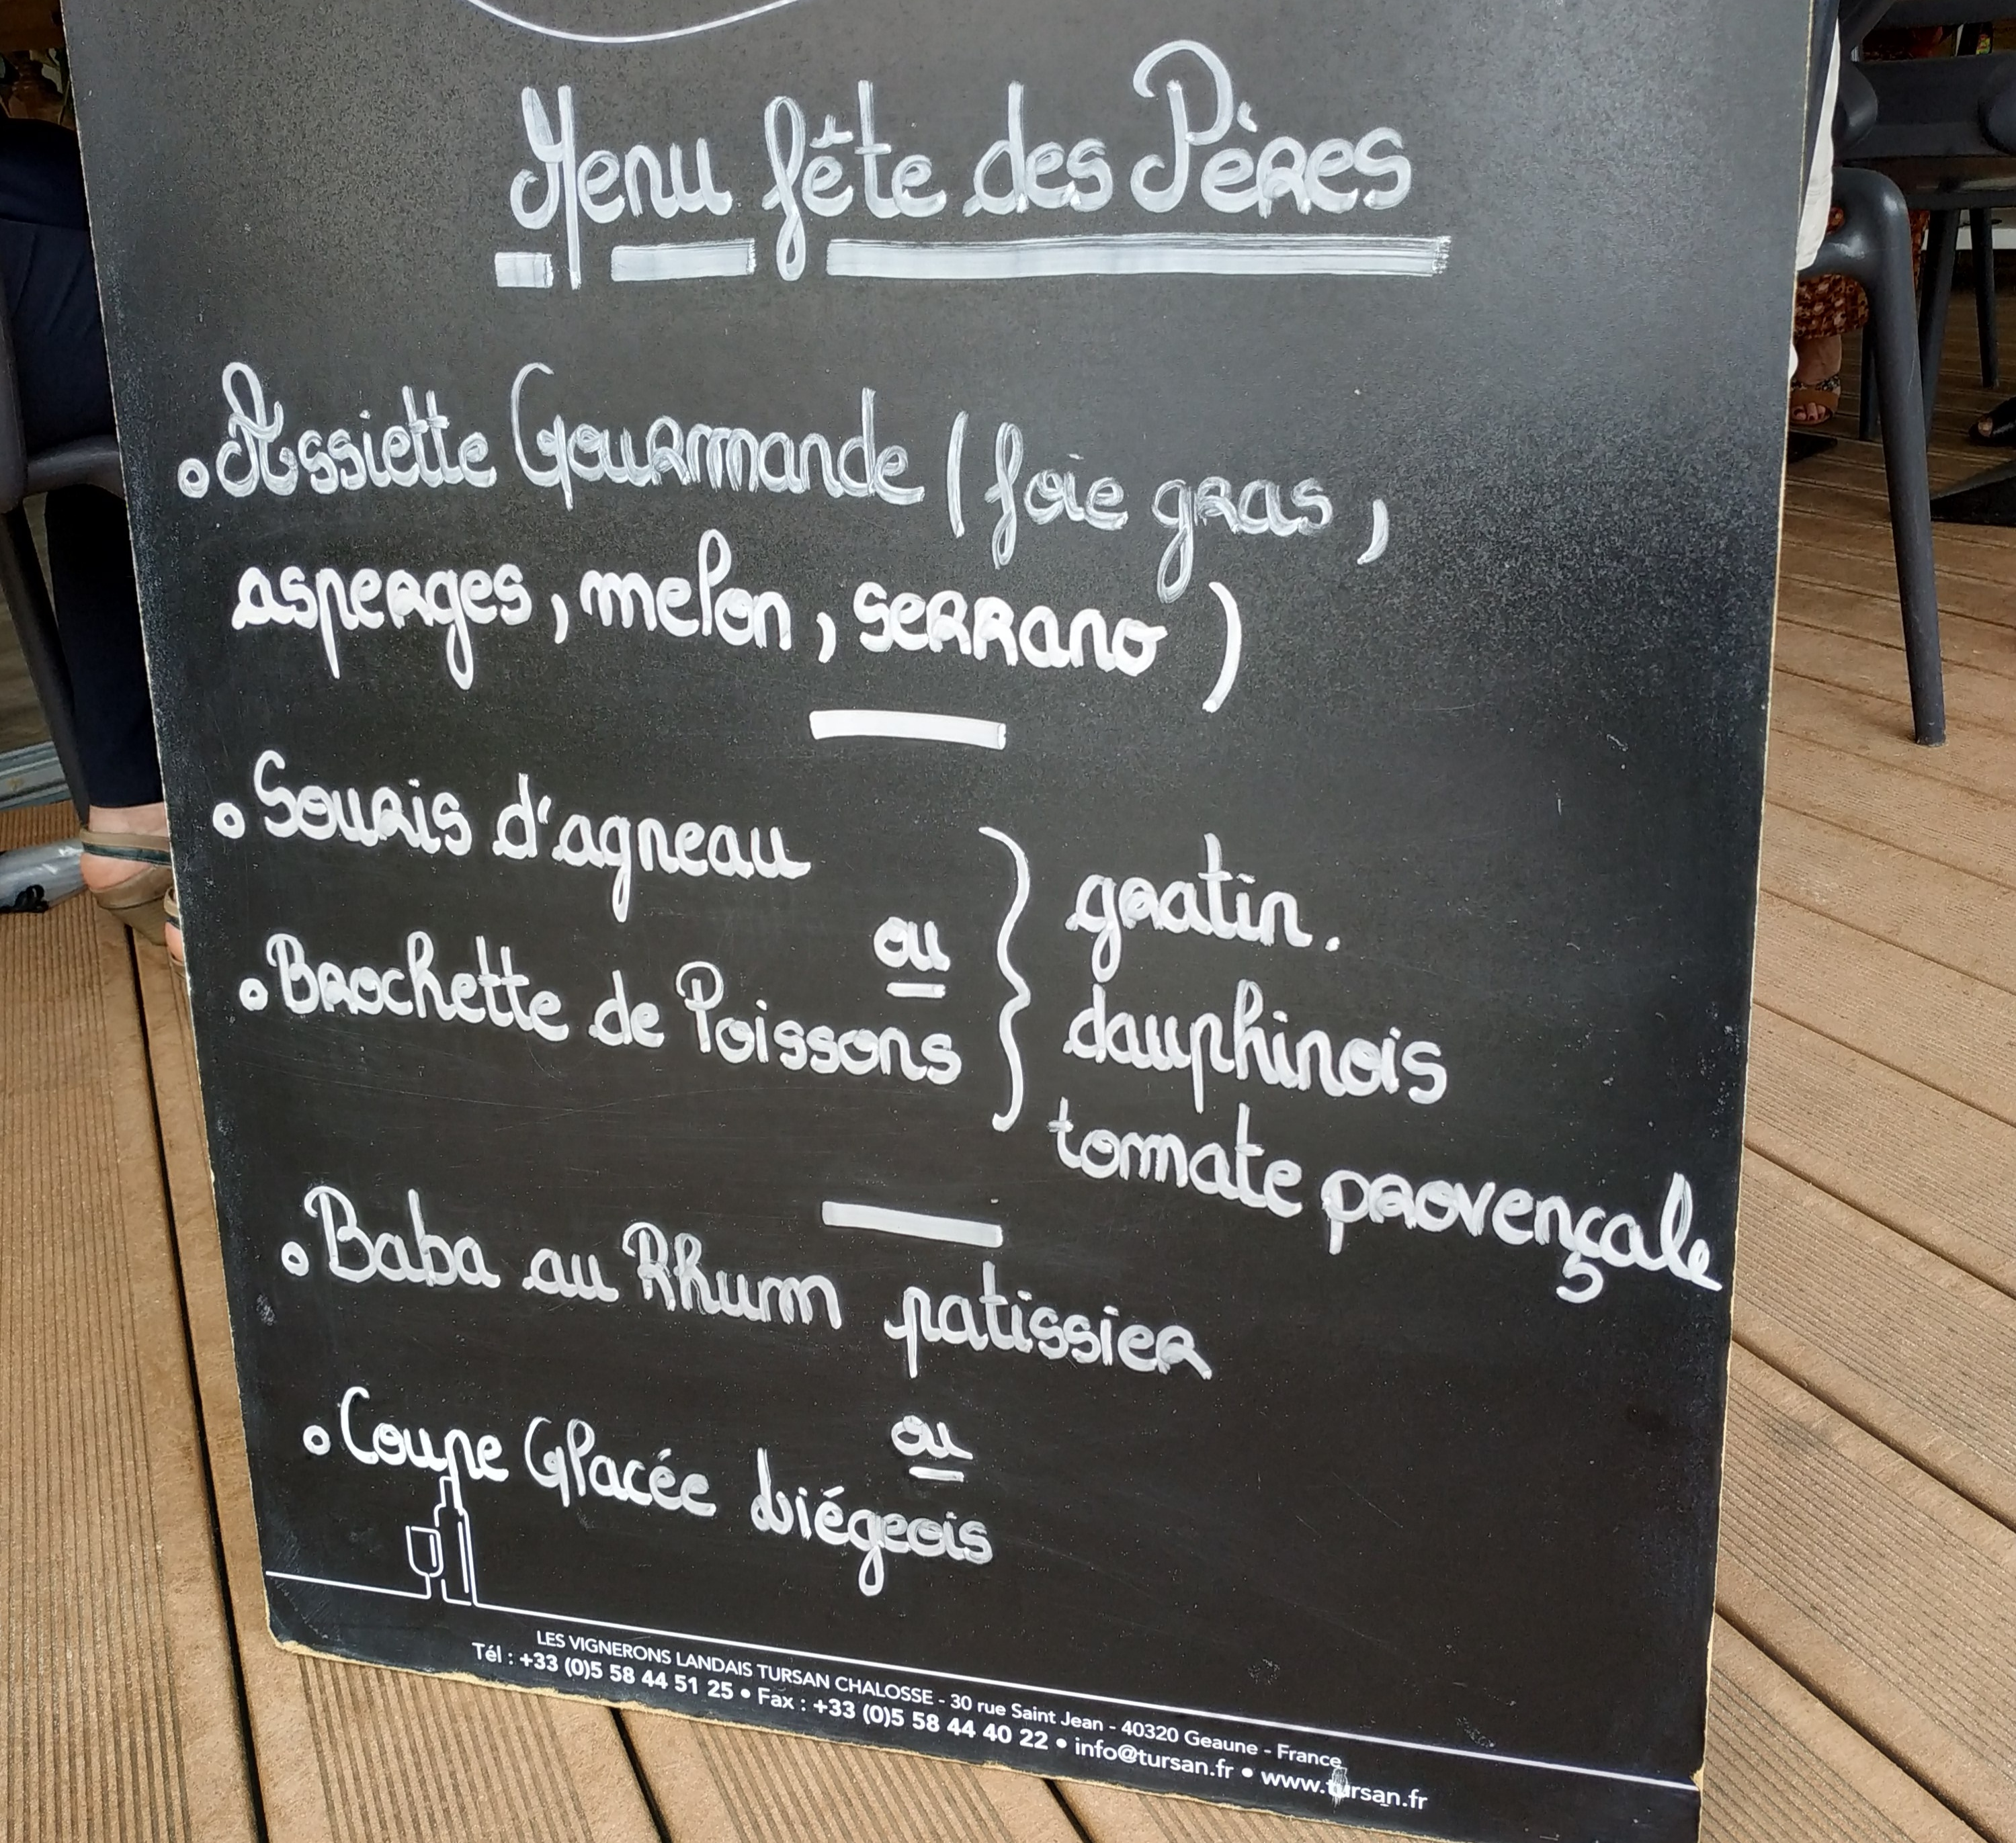 Menu fête des Pères
Assiette Gourmande (foie gras,
asperges, melon, serrano)
Souris d'agneau
ou
Brochette de Poissons
gratin.
dauphinois
tomate provençale
Baba au Rhum patissier
ou
Coupe Glacée Liégeois
LES VIGNERONS LANDAIS TURSAN CHALOSSE - 30 rue Saint Jean - 40320 Geaune - France
Tél : +33 (0)5 58 44 51 25 • Fax : +33 (0)5 58 44 40 22 • info@tursan.fr • www.tursan.fr